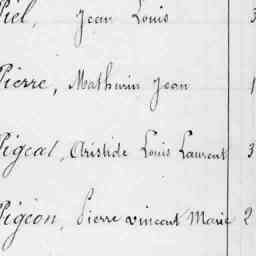 Piel, Jean Louis 3
Pierre, Mathurin Jean 1
Pigeal, Aristide Louis Laurent 3
Pigeon, Pierre vincent Marie 2